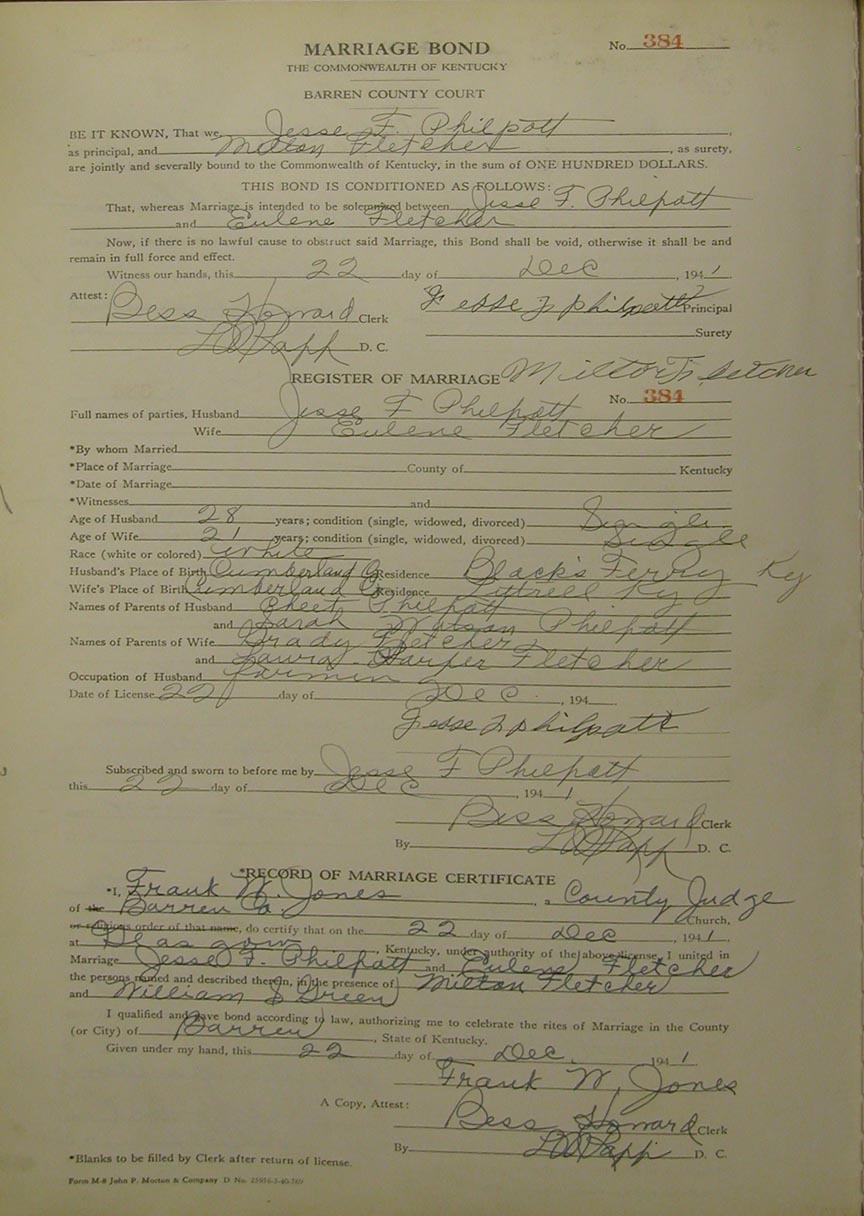 MARRIAGE BOND No. 384
THE COMMONWEALTH OF KENTUCKY
BARREN COUNTY COURT
BE IT KNOWN, That we, Jesse F. Philpott,
as principal, and Milton Fletcher, as surety,
are jointly and severally bound to the Commonwealth of Kentucky, in the sum of ONE HUNDRED DOLLARS.
THIS BOND IS CONDITIONED AS FOLLOWS:
That, whereas Marriage is intended to be solemnized between Jesse F. Philpott
and Eulene Fletcher
Now, if there is no lawful cause to obstruct said Marriage, this Bond shall be void, otherwise it shall be and
remain in full force and effect.
Witness our hands, this 22 day of Dec, 1941
Attest: Bess Howard Clerk Jesse F Philpott Principal
D. C. Surety
REGISTER OF MARRIAGE Milton Fletcher
No. 384
Full names of parties, Husband Jesse F Philpott
Wife Eulene Fletcher
*By whom Married
*Place of Marriage County of Kentucky
*Date of Marriage
*Witnesses and
Age of Husband 28 years; condition (single, widowed, divorced) Single
Age of Wife 21 years; condition (single, widowed, divorced) Single
Race (white or colored) White
Husband's Place of Birth Cumberland Co Residence Black's Ferry Ky
Wife's Place of Birth Cumberland Co Residence Ky
Names of Parents of Husband Cheet Philpott
and Sarah Watson Philpott
Names of Parents of Wife Grady Fletcher
and Laura Harper Fletcher
Occupation of Husband farming
Date of License 22 day of Dec, 194
Jesse F Philpott
Subscribed and sworn to before me by Jesse F Philpott
this 22 day of Dec, 1941
Bess Howard Clerk
By D. C.
*RECORD OF MARRIAGE CERTIFICATE
*I, Frank W. Jones, a County Judge
of the Barren Co. Church,
or religious order of that name, do certify that on the 22 day of Dec, 1941,
at Glasgow, Kentucky, under authority of the above license, I united in
Marriage Jesse F. Philpott and Eulene Fletcher
the persons named and described therein, in the presence of Milton Fletcher
and William S Green
I qualified and gave bond according to law, authorizing me to celebrate the rites of Marriage in the County
(or City) of Barren, State of Kentucky.
Given under my hand, this 22 day of Dec. 1941
Frank W. Jones
A Copy, Attest: Bess Howard Clerk
By D. C.
*Blanks to be filled by Clerk after return of license.
Form M-8 John P. Morton & Company D No.